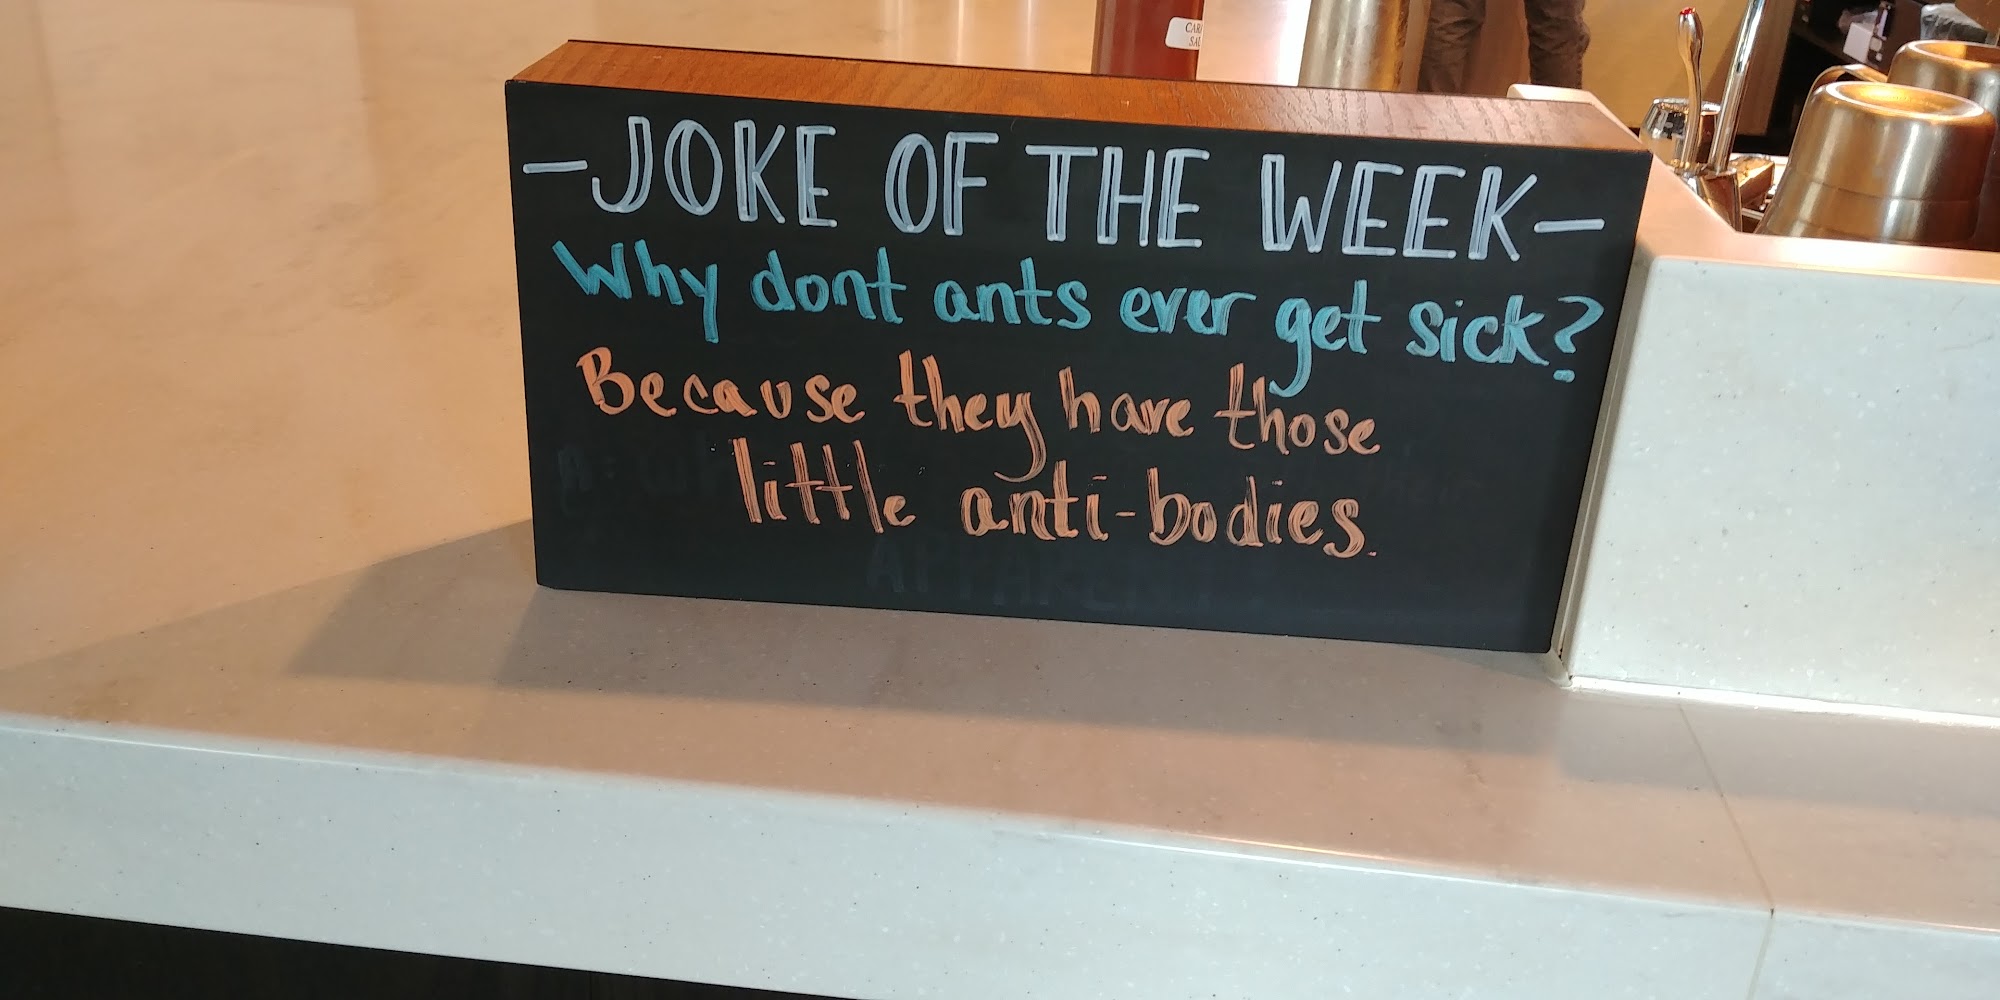 —JOKE OF THE WEEK—
Why dont ants ever get sick?
Because they have those
little anti-bodies.